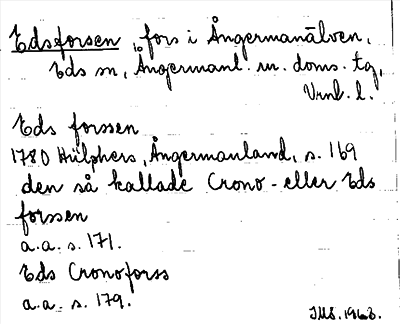 Edsforsen, fors i Ångermanälven,
Eds sn, Ångermanl. m. doms. tg,
Vrnl. l.
Eds forssen
1780 Hülphers, Ångermanland, s. 169
den så kallade Crono- eller Eds
forssen
a.a. s. 171.
Eds Cronoforss
a.a. s. 179.
1963.